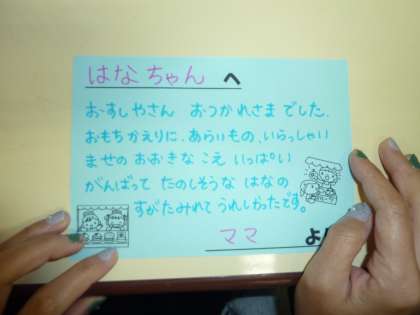 はなちゃん へ
おすしやさん おつかれさまでした.
おもちかえりに、あらいもの、いらっしゃい
ませの おおきな こえ いっぱい
がんばって たのしそうな はなの
すがたみれて うれしかったです。
ママ より